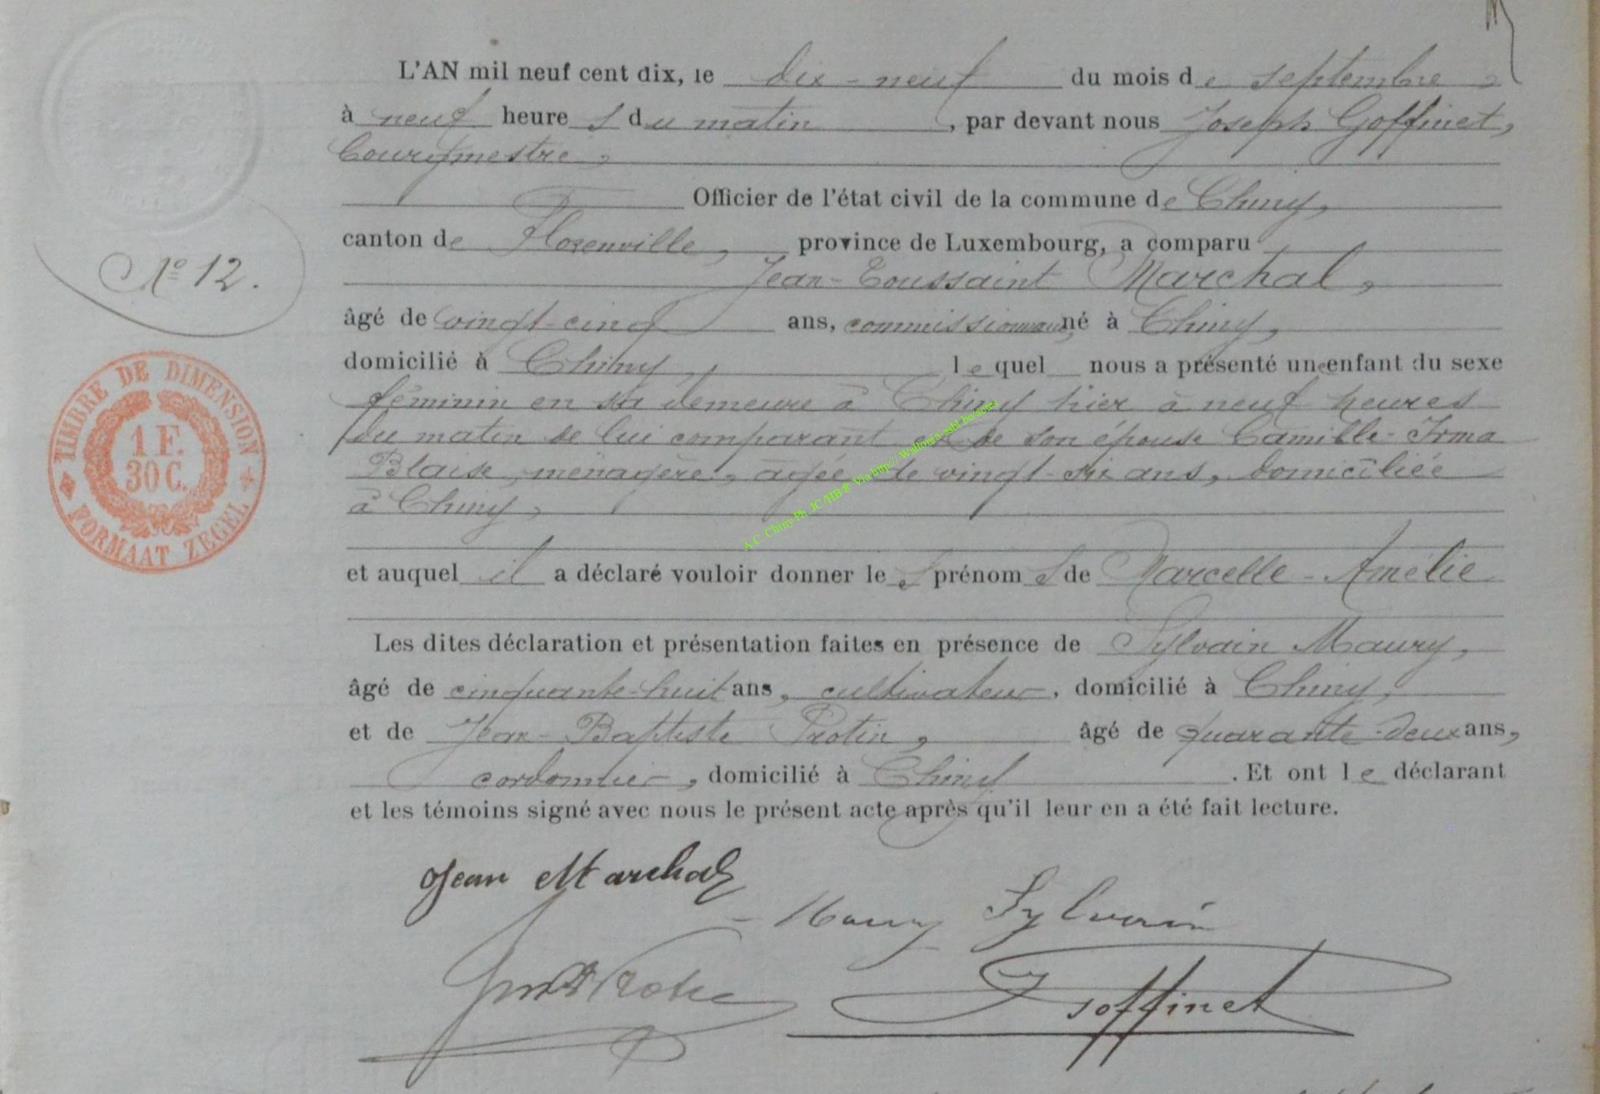 L'AN mil neuf cent dix, le dix-neuf du mois de septembre
à neuf heures du matin, par devant nous Joseph Goffinet,
bourgmestre,
Officier de l'état civil de la commune de Chiny,
canton de Florenville, province de Luxembourg, a comparu
Jean-Toussaint Marchal,
âgé de vingt-cinq ans, commissionnaire, né à Chiny,
domicilié à Chiny, lequel nous a présenté une enfant du sexe
féminin en sa demeure à Chiny hier à neuf heures
du matin de lui comparant & de son épouse Camille-Irma
Blaise, ménagère, âgée de vingt-six ans, domiciliée
à Chiny,
et auquel il a déclaré vouloir donner les prénoms de Marcelle-Amélie
Les dites déclaration et présentation faites en présence de Sylvain Maury,
âgé de cinquante-huit ans, cultivateur, domicilié à Chiny,
et de Jean-Baptiste Protin, âgé de quarante-deux ans,
cordonnier, domicilié à Chiny. Et ont le déclarant
et les témoins signé avec nous le présent acte après qu'il leur en a été fait lecture.
Jean Marchal
Maury Sylvain
J Goffinet
N° 12.
TIMBRE DE DIMENSION
1 F.
30 C.
FORMAAT ZEGEL